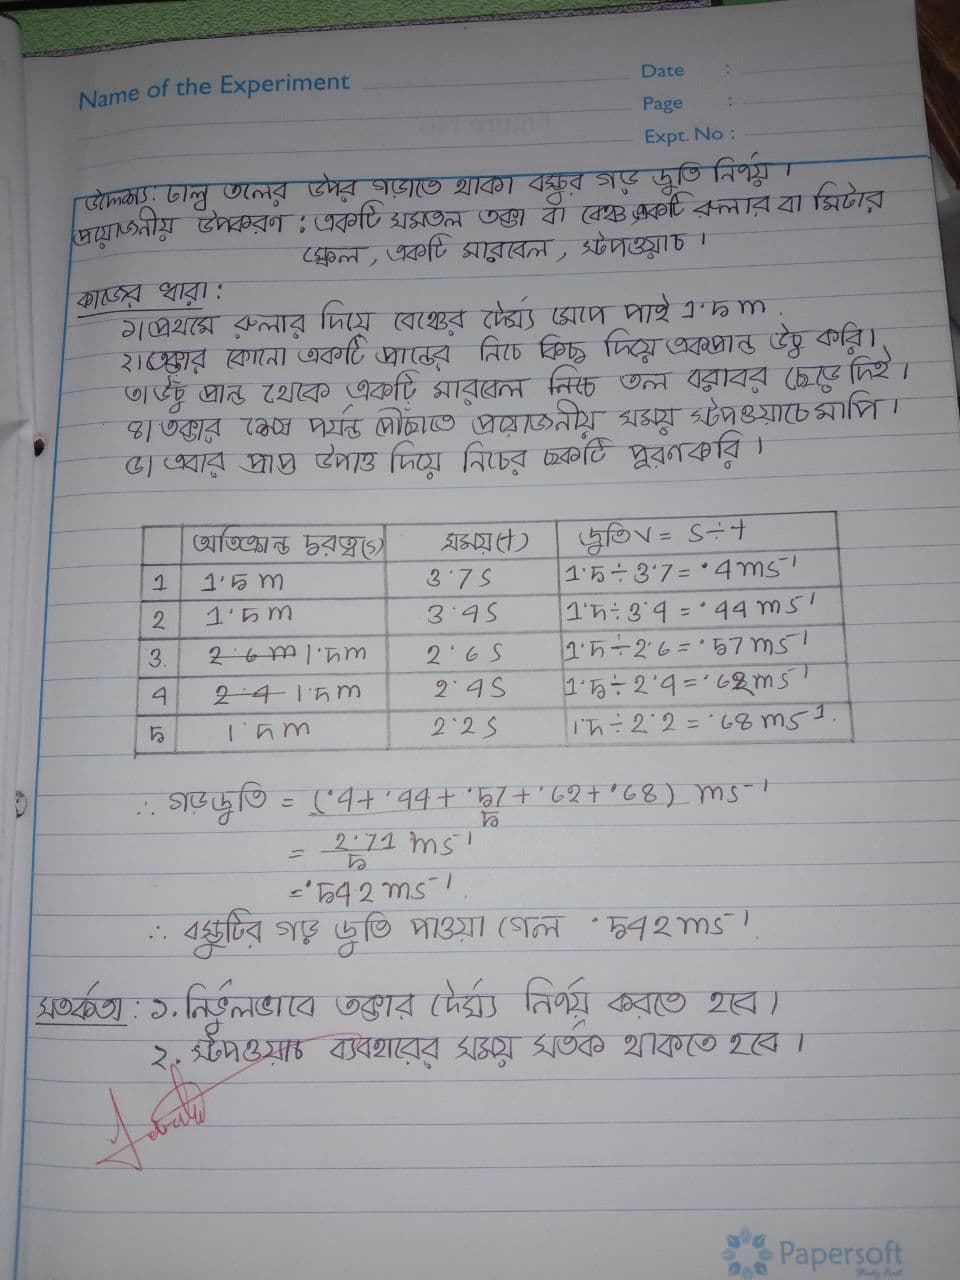 Name of the Experiment
Date :
Page :
Expt. No :
উদ্দেশ্য: ঢালু তলের উপর গড়াতে থাকা বস্তুর গড় দ্রুতি নির্ণয়।
প্রয়োজনীয় উপকরণ : একটি সমতল তক্তা বা বেঞ্চ, একটি রুলার বা মিটার
স্কেল, একটি মারবেল, স্টপওয়াচ।
কাজের ধারা :
১। প্রথমে রুলার দিয়ে বেঞ্চের দৈর্ঘ্য মেপে পাই 1.5 m.
২। তক্তার কোনো একটি প্রান্তের নিচে কিছু দিয়ে একপ্রান্ত উঁচু করি।
৩। উঁচু প্রান্ত থেকে একটি মারবেল নিচে তল বরাবর ছেড়ে দিই।
৪। তক্তার শেষ পর্যন্ত পৌঁছাতে প্রয়োজনীয় সময় স্টপওয়াচে মাপি।
৫। এবার প্রাপ্ত উপাত্ত দিয়ে নিচের ছকটি পূরণ করি।
অতিক্রান্ত দূরত্ব(s) সময়(t) দ্রুতি v = s÷t
1 1.5 m 3.7 s 1.5÷3.7= .4 ms⁻¹
2 1.5 m 3.4 s 1.5÷3.4 = .44 ms⁻¹
3. 2.6 m 1.5m 2.6 s 1.5÷2.6= .57 ms⁻¹
4 2.4 1.5m 2.4s 1.5÷2.4=.62ms⁻¹
5 1.5 m 2.2s 1.5÷2.2 =.68 ms⁻¹.
∴ গড়দ্রুতি = (.4+.44+.57+.62+.68) ms⁻¹
5
= 2.71 ms⁻¹
5
= .542 ms⁻¹.
∴ বস্তুটির গড় দ্রুতি পাওয়া গেল .542 ms⁻¹.
সতর্কতা : ১. নির্ভুলভাবে তক্তার দৈর্ঘ্য নির্ণয় করতে হবে।
২. স্টপওয়াচ ব্যবহারের সময় সতর্ক থাকতে হবে।
Papersoft